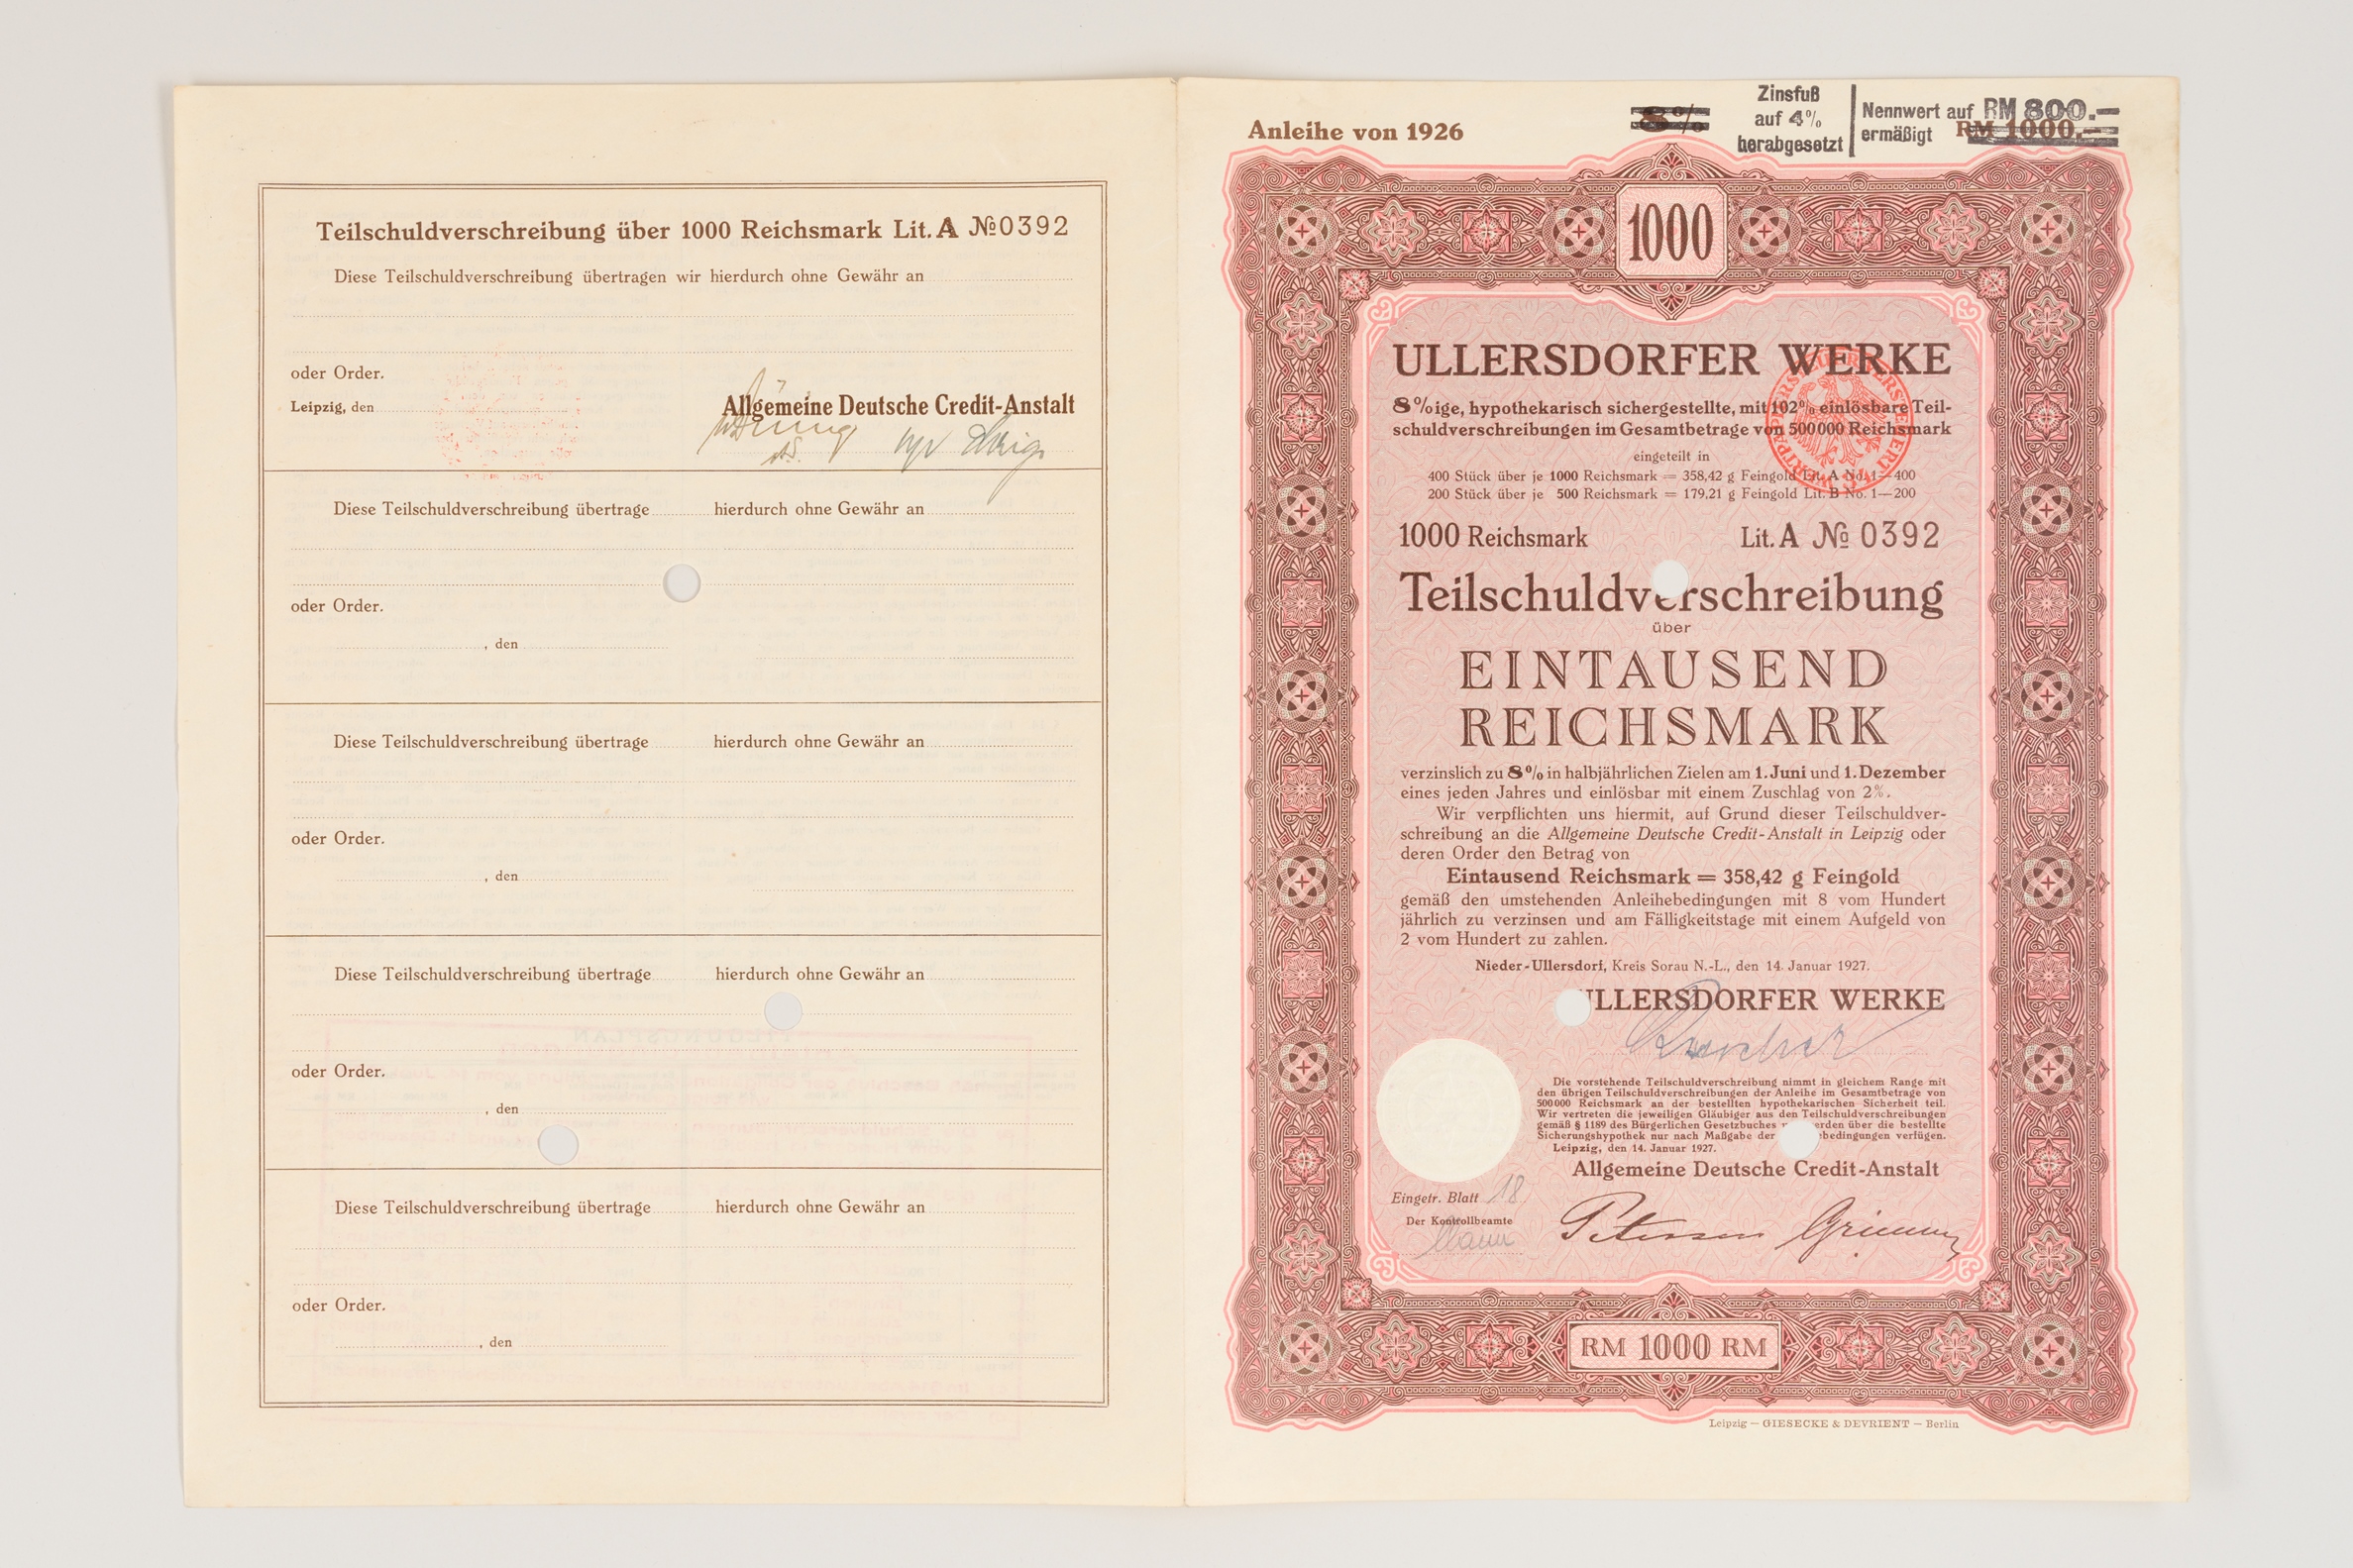 Teilschuldverschreibung über 1000 Reichsmark Lit. A № 0392
Diese Teilschuldverschreibung übertragen wir hierdurch ohne Gewähr an
oder Order.
Leipzig, den
Allgemeine Deutsche Credit-Anstalt
Diese Teilschuldverschreibung übertrage hierdurch ohne Gewähr an
oder Order.
, den
Diese Teilschuldverschreibung übertrage hierdurch ohne Gewähr an
oder Order.
, den
Diese Teilschuldverschreibung übertrage hierdurch ohne Gewähr an
oder Order.
, den
Diese Teilschuldverschreibung übertrage hierdurch ohne Gewähr an
oder Order.
, den
Anleihe von 1926
8%
Zinsfuß
auf 4%
herabgesetzt
Nennwert auf RM 800.—
ermäßigt RM 1000.—
1000
ULLERSDORFER WERKE
8%ige, hypothekarisch sichergestellte, mit 102% einlösbare Teil-
schuldverschreibungen im Gesamtbetrage von 500000 Reichsmark
eingeteilt in
400 Stück über je 1000 Reichsmark = 358,42 g Feingold Lit. A No. 1—400
200 Stück über je 500 Reichsmark = 179,21 g Feingold Lit. B No. 1—200
1000 Reichsmark Lit. A № 0392
Teilschuldverschreibung
über
EINTAUSEND
REICHSMARK
verzinslich zu 8% in halbjährlichen Zielen am 1. Juni und 1. Dezember
eines jeden Jahres und einlösbar mit einem Zuschlag von 2%.
Wir verpflichten uns hiermit, auf Grund dieser Teilschuldver-
schreibung an die Allgemeine Deutsche Credit-Anstalt in Leipzig oder
deren Order den Betrag von
Eintausend Reichsmark = 358,42 g Feingold
gemäß den umstehenden Anleihebedingungen mit 8 vom Hundert
jährlich zu verzinsen und am Fälligkeitstage mit einem Aufgeld von
2 vom Hundert zu zahlen.
Nieder-Ullersdorf, Kreis Sorau N.-L., den 14. Januar 1927.
ULLERSDORFER WERKE
Die vorstehende Teilschuldverschreibung nimmt in gleichem Range mit
den übrigen Teilschuldverschreibungen der Anleihe im Gesamtbetrage von
500000 Reichsmark an der bestellten hypothekarischen Sicherheit teil.
Wir vertreten die jeweiligen Gläubiger aus den Teilschuldverschreibungen
gemäß § 1189 des Bürgerlichen Gesetzbuches erden über die bestellte
Sicherungshypothek nur nach Maßgabe der ebedingungen verfügen.
Leipzig, den 14. Januar 1927.
Allgemeine Deutsche Credit-Anstalt
Eingetr. Blatt 18
Der Kontrollbeamte
Petersen Grimm
RM 1000 RM
Leipzig — GIESECKE & DEVRIENT — Berlin